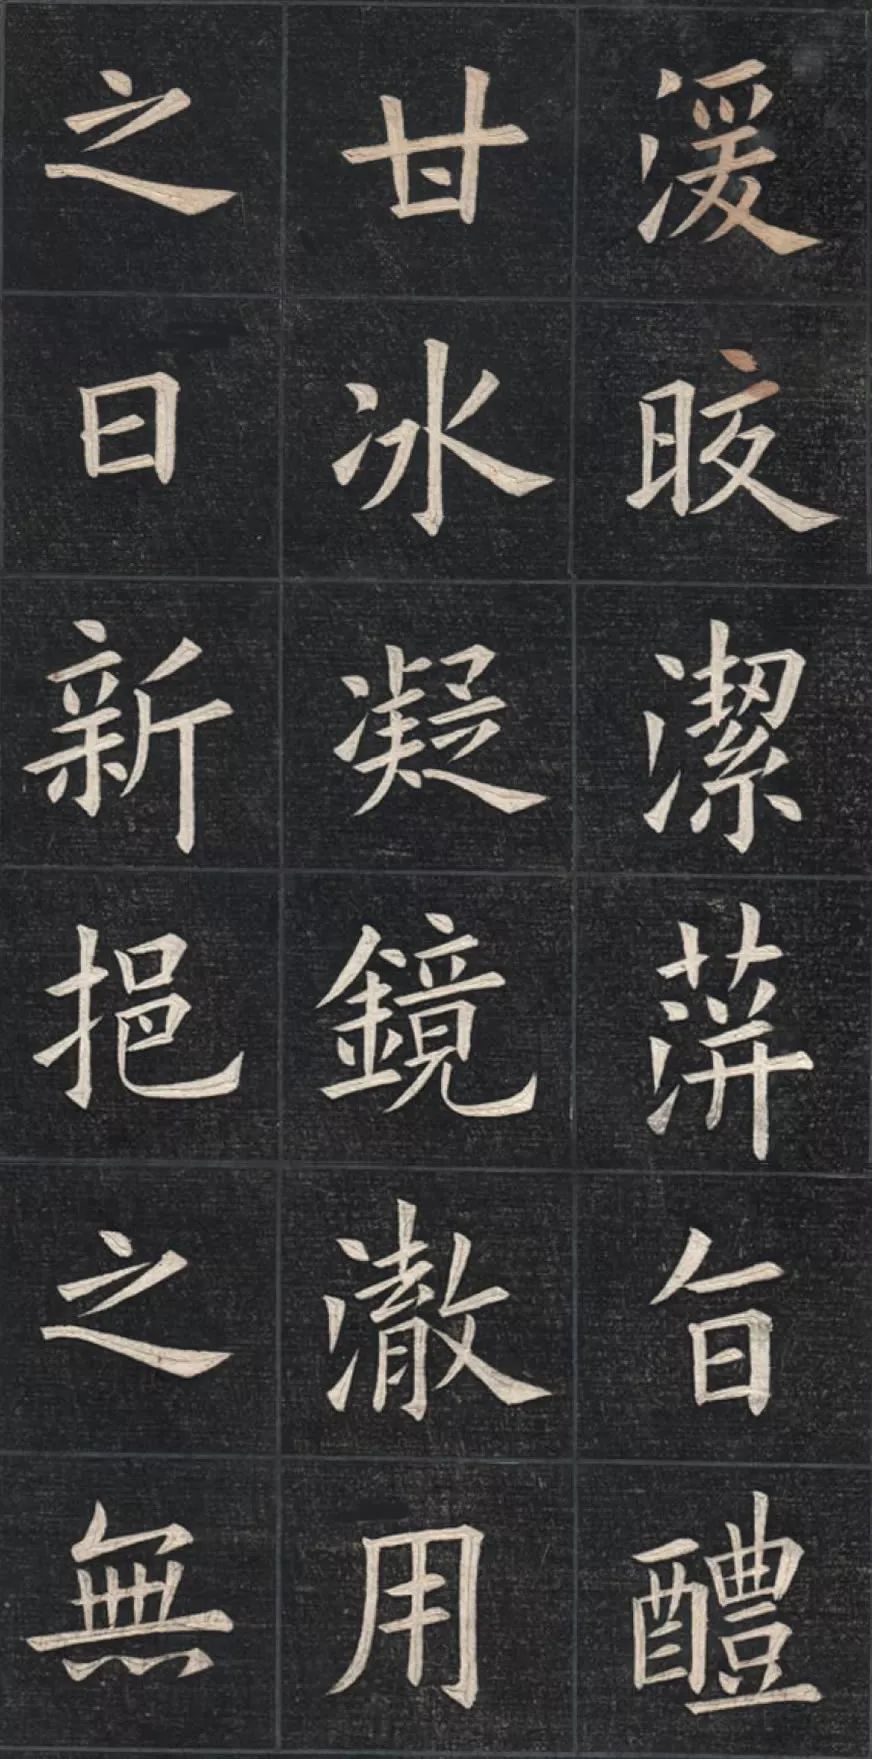 湲皎潔蓱旨醴
甘冰凝鏡澈用
之日新挹之無